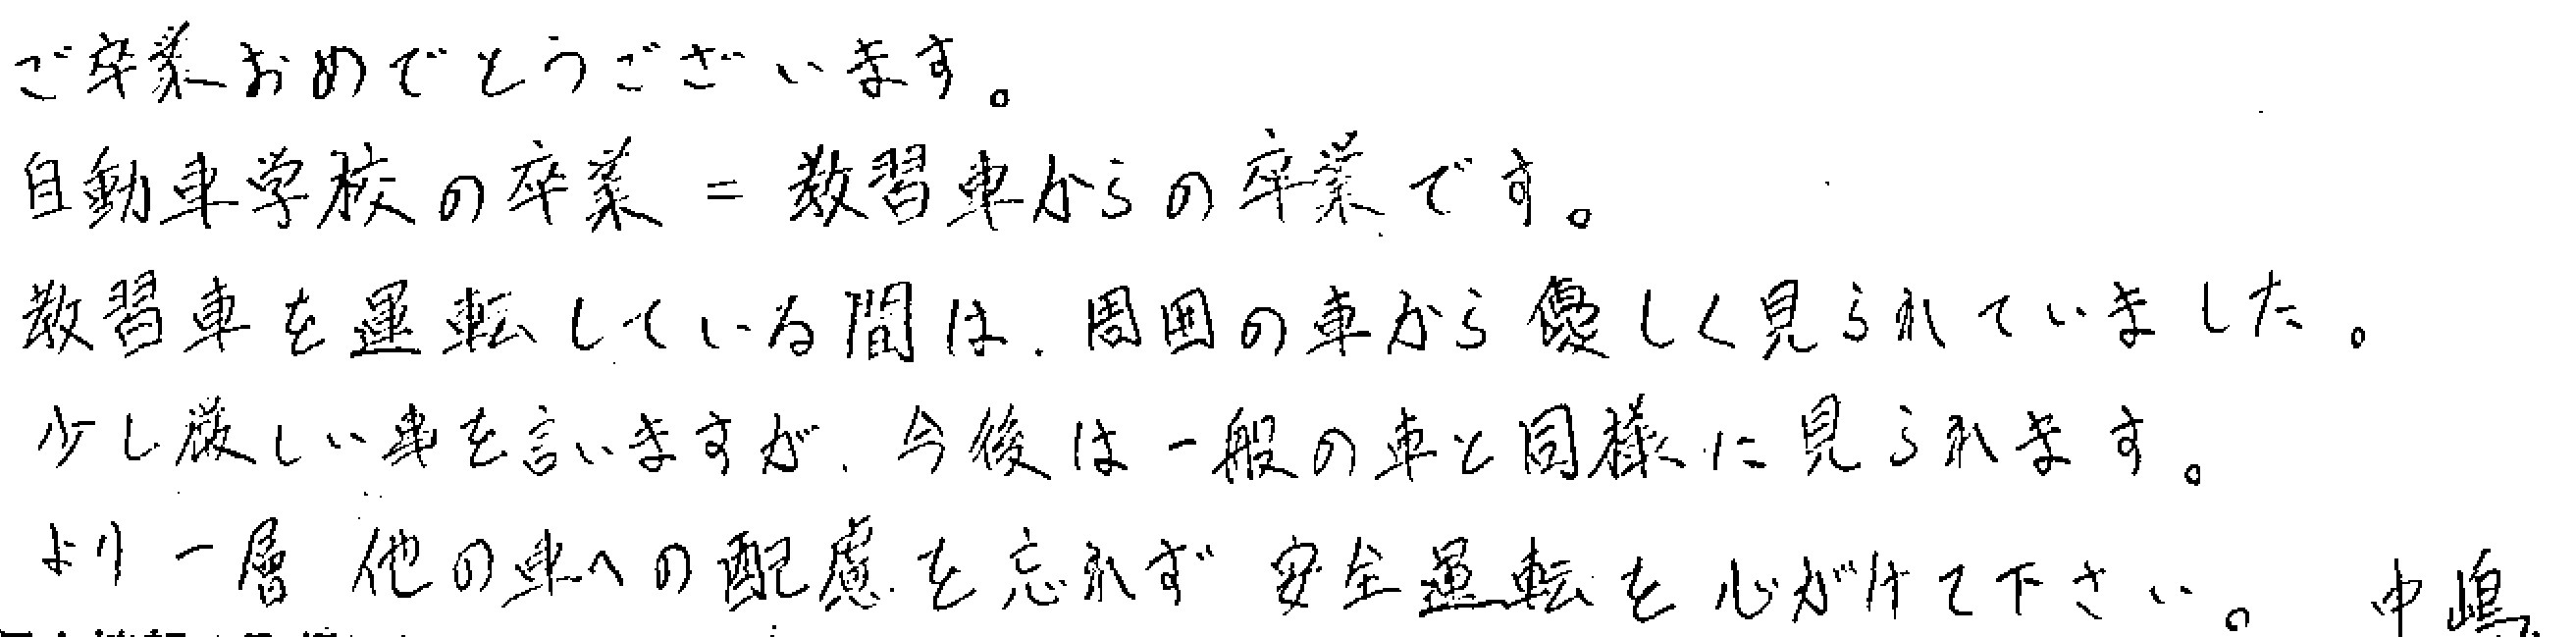 ご卒業おめでとうございます。
自動車学校の卒業 = 教習車からの卒業です。
教習車を運転している間は、周囲の車から優しく見られていました。
少し厳しい事を言いますが、今後は一般の車と同様に見られます。
より一層 他の車への配慮を忘れず 安全運転を心がけて下さい。 中嶋